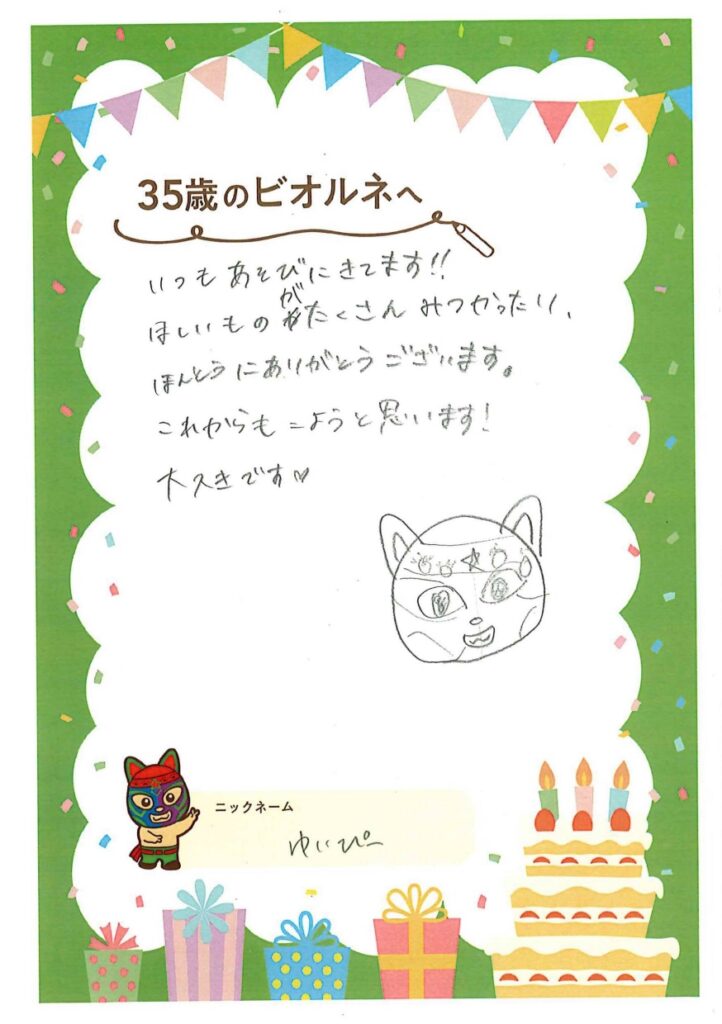 35歳のビオルネへ
いつもあそびにきてます!!
ほしいものがたくさんみつかったり、
ほんとうにありがとうございます。
これからもこようと思います!
大スきです♡
ニックネーム
ゆいぴー